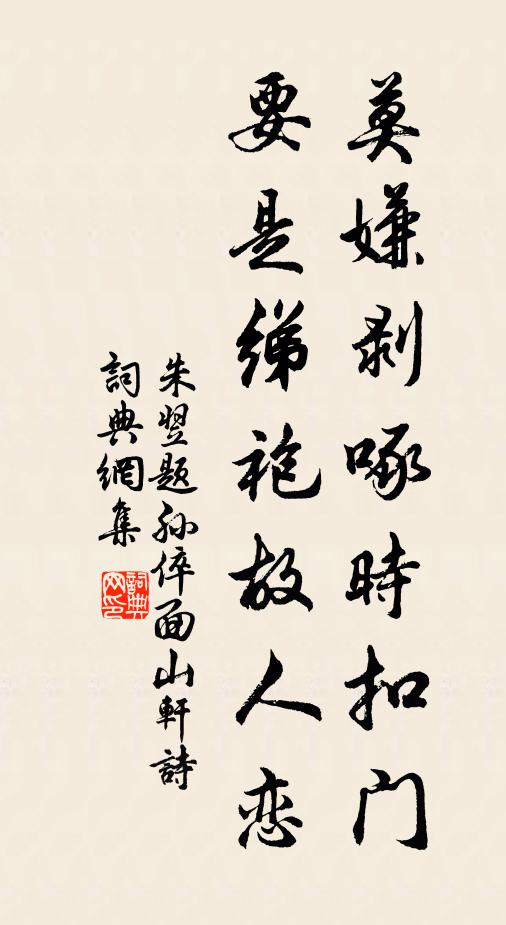 莫嫌剥啄時扣门
要是綈袍故人恋
朱翌题孙倅面山軒詩
詞典網集
詞典网印